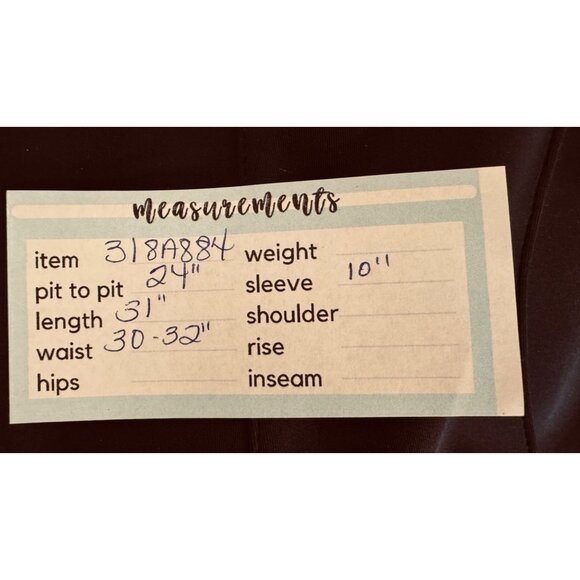 measurements
item 318A884 weight
pit to pit 24" sleeve 10"
length 31" shoulder
waist 30-32" rise
hips inseam